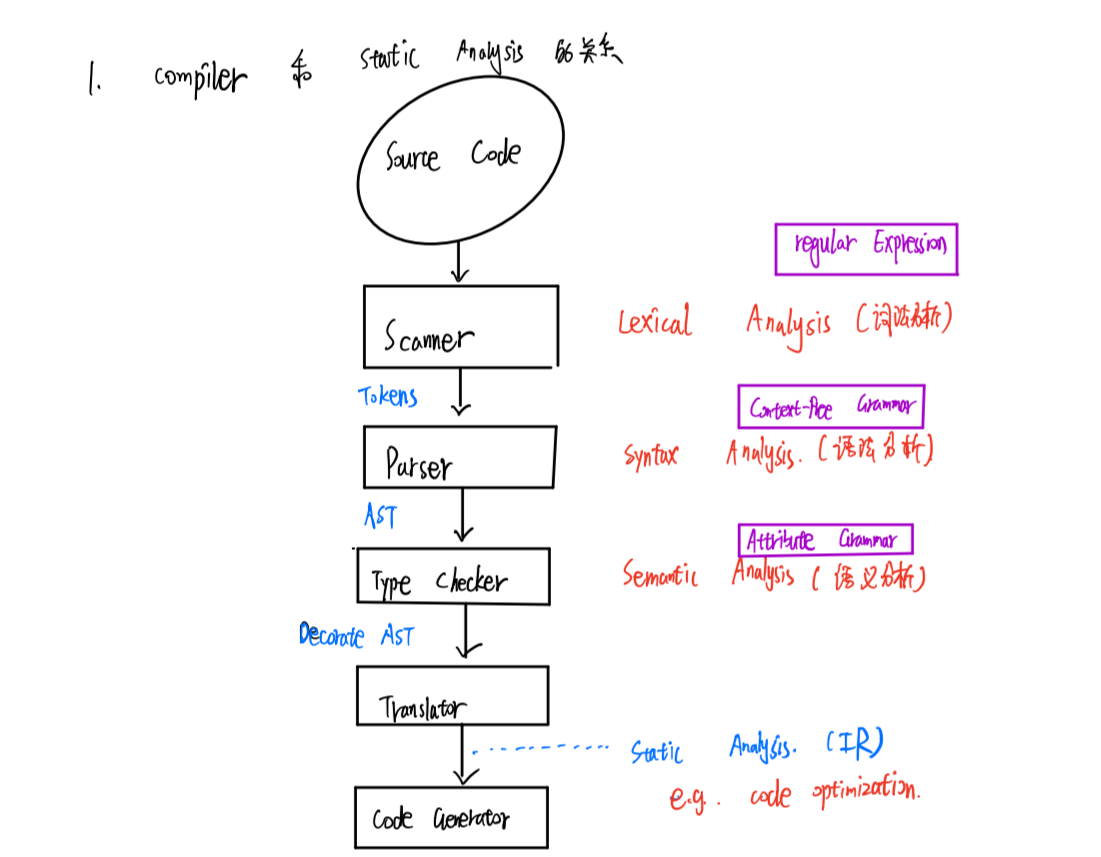 1. compiler 和 static Analysis 的关系
Source Code
regular Expression
Scanner
Lexical Analysis (词法分析)
Tokens
Context-free Grammar
Parser
Syntax Analysis. (语法分析)
AST
Attribute Grammar
Type checker
Semantic Analysis (语义分析)
Decorate AST
Translator
Static Analysis. (IR)
e.g. code optimization.
Code Generator